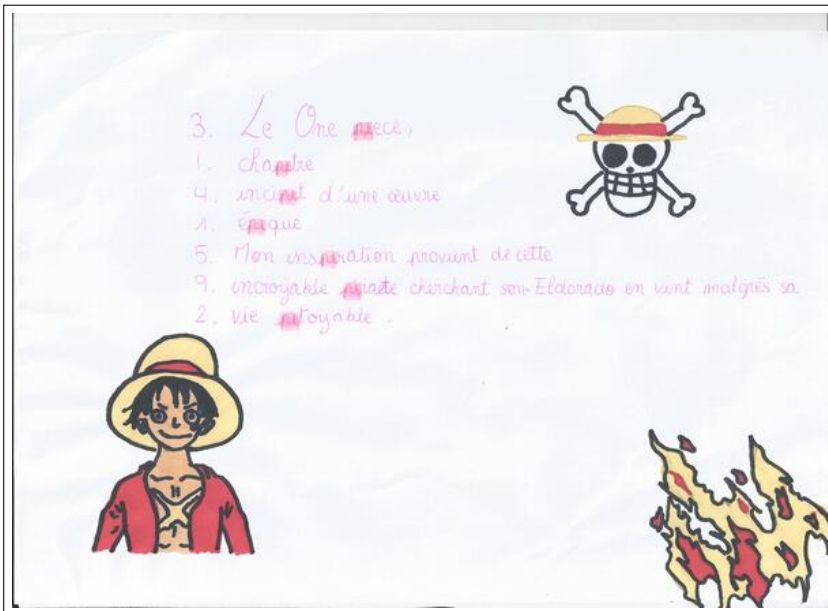 3. Le One piece,
1. chapitre
4. incipit d'une œuvre
1. épique
5. Mon inspiration provient de cette
9. incroyable pirate cherchant son Eldorado en vint malgrés sa
2. vie pitoyable.